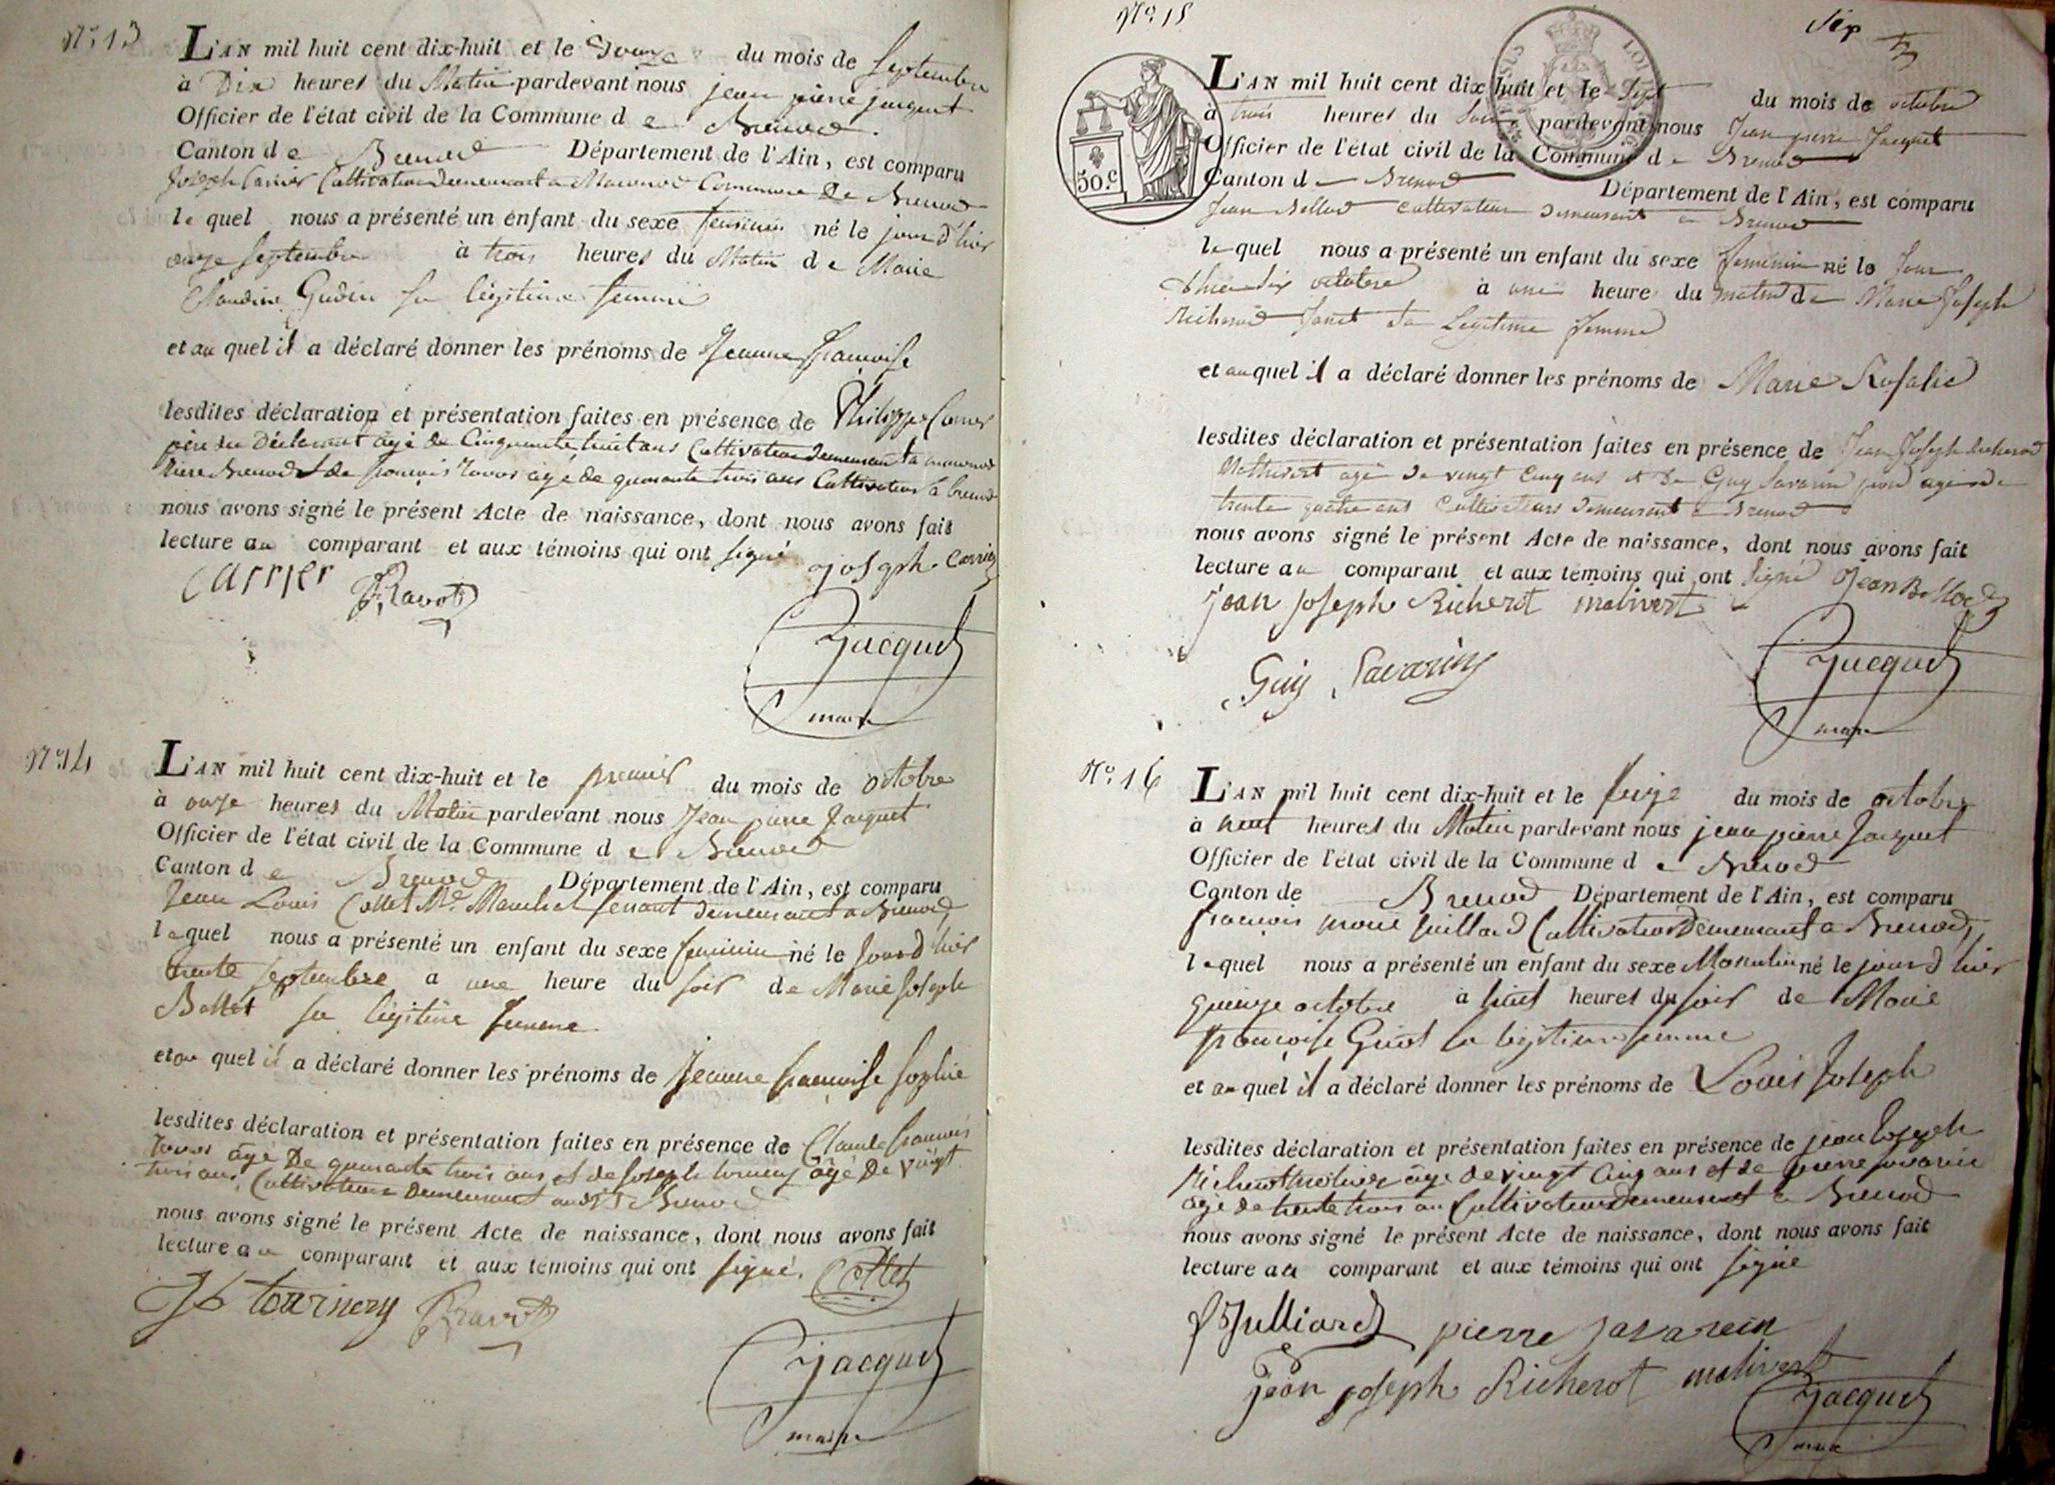 N.° 13
L'AN mil huit cent dix-huit et le Douze du mois de Septembre
à Dix heures du Matin pardevant nous jean pierre jacquet
Officier de l'état civil de la Commune de Brenod.
Canton de Brenod Département de l'Ain, est comparu
Joseph Carrier Cultivateur demeurant a Commune De Brenod
lequel nous a présenté un enfant du sexe feminin né le jour d'hier
onze Septembre à trois heures du Matin de Marie
Claudine Gudin sa légitime femme
et au quel il a déclaré donner les prénoms de Jeanne françoise
lesdites déclaration et présentation faites en présence de Philippe Carrier
père du Déclarant âgé de Cinquante huit ans Cultivateur demeurant a
Brenod & de françois ravot âgé de quarante trois ans Cultivateur a brenod
nous avons signé le présent Acte de naissance, dont nous avons fait
lecture au comparant et aux témoins qui ont signé joseph Carrier
Carrier Ravot
Jacquet
maire
N.° 14
L'AN mil huit cent dix-huit et le premier du mois de octobre
à onze heures du Matin pardevant nous Jean pierre Jacquet
Officier de l'état civil de la Commune de Brenod
Canton de Brenod Département de l'Ain, est comparu
Jean Louis Collet M.d Marechal ferrant demeurant a Brenod,
lequel nous a présenté un enfant du sexe feminin né le Jour d'hier
trente septembre a une heure du soir de Marie Joseph
Bollet sa légitime femme
et au quel il a déclaré donner les prénoms de Jeanne françoise sophie
lesdites déclaration et présentation faites en présence de Claude françois
ravot âgé De quarante trois ans et de Joseph tournery âgé De vingt
trois ans, Cultivateurs Demeurant audit Brenod
nous avons signé le présent Acte de naissance, dont nous avons fait
lecture au comparant et aux témoins qui ont signé. Collet
Jh tournery Ravot
Jacquet
maire
N.° 15
Sep
50.C
L'AN mil huit cent dix huit et le Sept du mois de octobre
à trois heures du Soir pardevant nous Jean pierre Jacquet
Officier de l'état civil de la Commune de Brenod
Canton de Brenod Département de l'Ain, est comparu
Jean Bellod cultivateur demeurant a Brenod
lequel nous a présenté un enfant du sexe feminin né le Jour
d'hier six octobre à une heure du matin de Marie Joseph
Richerod Janet sa Legitime femme
et auquel il a déclaré donner les prénoms de Marie Rosalie
lesdites déclaration et présentation faites en présence de Jean Joseph richerod
Mathivert agé de vingt cinq ans et De Guy Savarin agé de
trente quatre ans cultivateurs demeurant a Brenod
nous avons signé le présent Acte de naissance, dont nous avons fait
lecture au comparant et aux témoins qui ont signé Jean Bellod
jean joseph Richerot malivert
Guy Savarin
Jacquet
maire
N.° 16
L'AN mil huit cent dix-huit et le seize du mois de octobre
à neuf heures du Matin pardevant nous jean pierre Jacquet
Officier de l'état civil de la Commune de Brenod
Canton de Brenod Département de l'Ain, est comparu
françois marie Juilliard Cultivateur Demeurant a Brenod,
lequel nous a présenté un enfant du sexe Masculin né le jour d'hier
quinze octobre à huit heures du soir de Marie
françoise Guiot sa légitime femme
et auquel il a déclaré donner les prénoms de Louis Joseph
lesdites déclaration et présentation faites en présence de jean Joseph
Richerot âgé de vingt Cinq ans et de pierre savarin
âgé de trente trois ans Cultivateurs demeurant a Brenod
nous avons signé le présent Acte de naissance, dont nous avons fait
lecture au comparant et aux témoins qui ont signé
Julliard pierre savarin
jean joseph Richerot malivert
Jacquet
maire